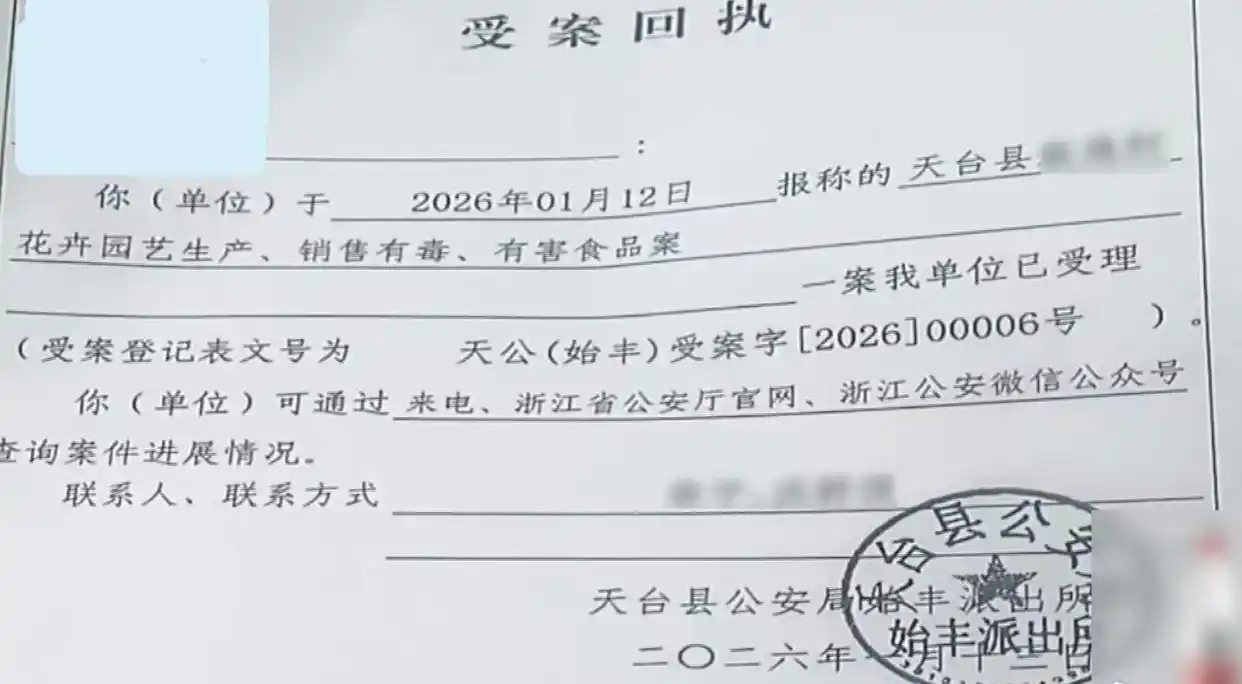 受案回执
:
你（单位）于 2026年01月12日 报称的 天台县
花卉园艺生产、销售有毒、有害食品案
一案我单位已受理
（受案登记表文号为 天公(始丰)受案字[2026]00006号 ）。
你（单位）可通过来电、浙江省公安厅官网、浙江公安微信公众号
查询案件进展情况。
联系人、联系方式
天台县公安局始丰派出所
二〇二六年一月十二日
天台县公安
始丰派出所